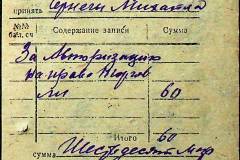 принять Сергеи Михаила
№№ бал. сч Содержание записи Сумма
За Авторизацию
на право Торгов
ли 60
Итого 60
сумма Шестьдесят